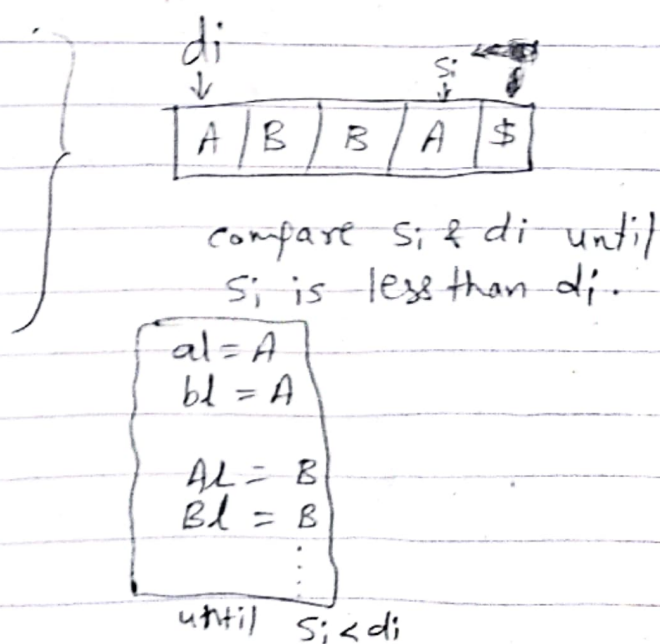 di
si
A B B A $
compare si & di until
si is less than di.
al = A
bl = A
AL = B
Bl = B
until si < di